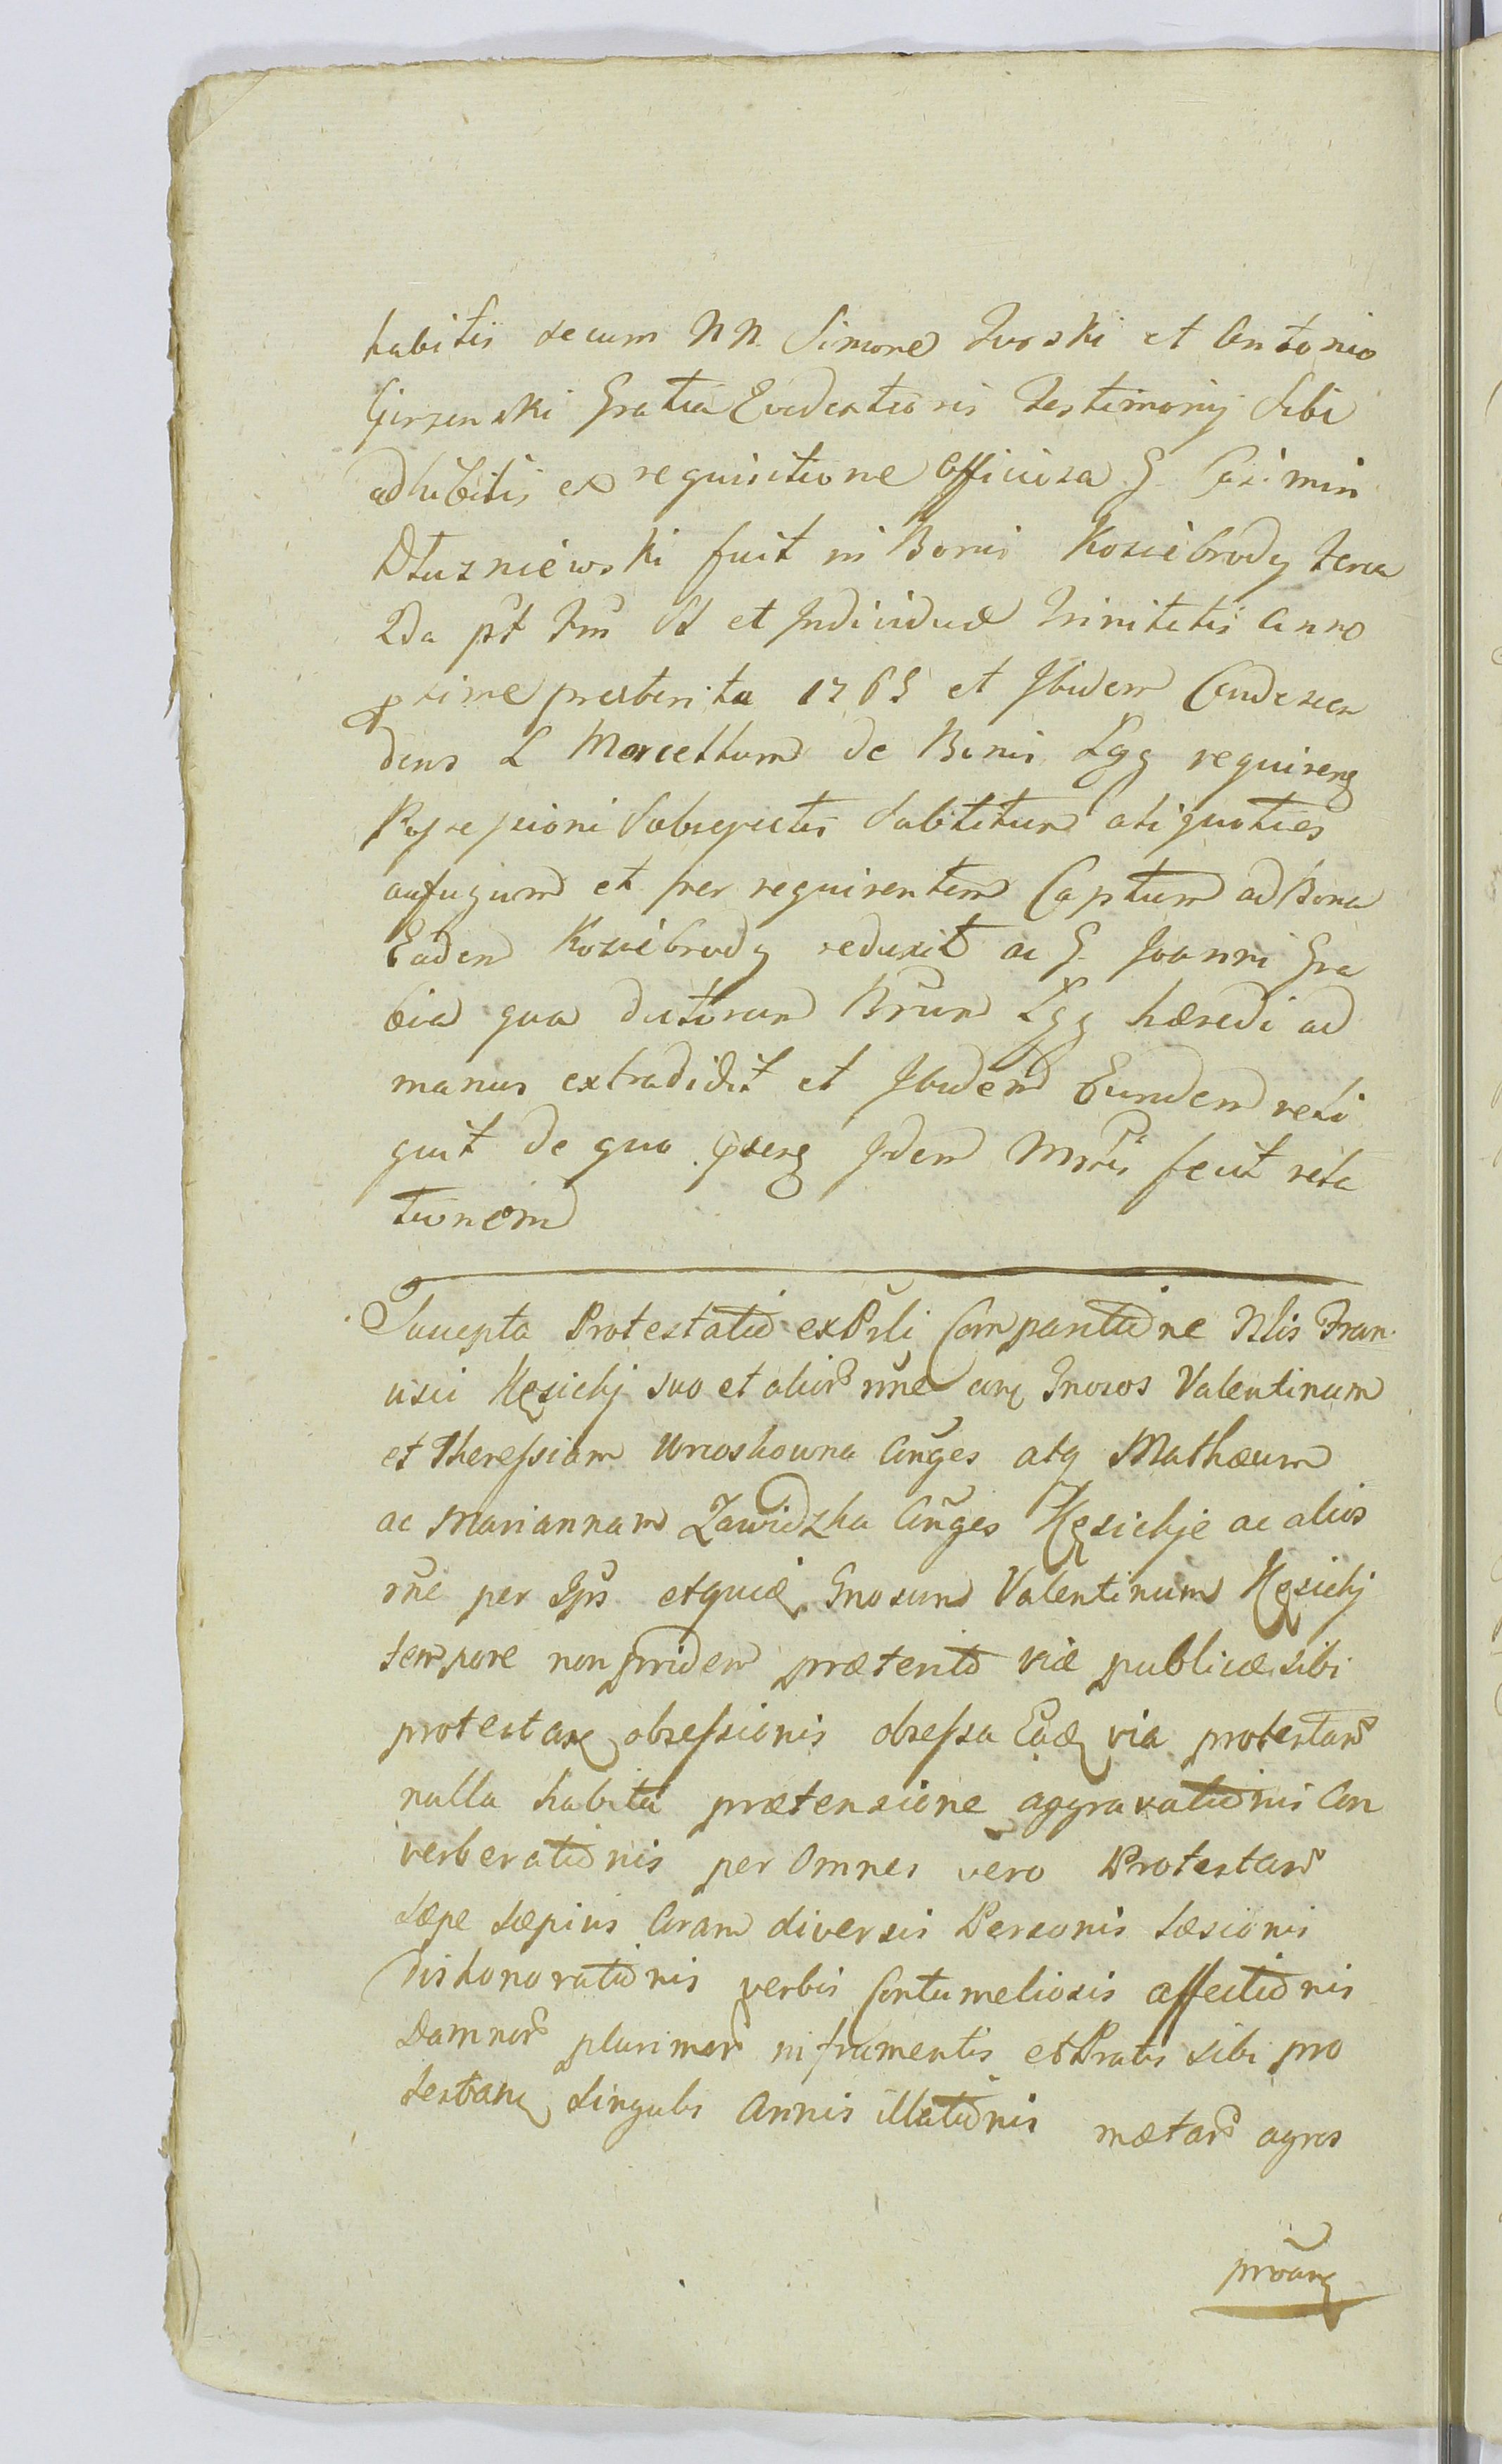 habitis secum NN. Simone Turski et Antonio
Girzinski Gratia Evidentioris Testimonij Sibi
adhibitis ex requisitione officiosa G. Casimiri
Dłuzniewski fuit in Bonis Kosiebrody feria
2da pt Fm SS et Individuæ Trinitatis Anno
proxime præterita 1765 et Ibidem Condescen
dens L Marcellum de Bonis Lgg requireng
Possessioni Subsepictis Subditum aliquoties
aufugum et per requirentem Captum ad Bona
Eadem Kosiebrody reduxit ac G. Joanni Gra
bia qua dictorum Bnrum Lgg hæredi ad
manus extradidit et Ibidem Eundem reli
quit de quo præns Idem Mnlis fecit rela
tionem
Suscepta Protestatio ex Prsli Comparitione Nlis Fran
cisci Kęsickj suo et alior nne cong Gnosos Valentinum
et Theressiam Wroskowna Cnges atq Mathæum
ac Mariannam Zawidzka Cnges Kęsickje ac alios
rne per Ips etquidę Gnosum Valentinum Kęsickj
tempore non pridem præterito viæ publicæ sibi
protestanę obsessionis obsessa Eadę via protestans
nulla habita prætensione aggravationis Con
verberationis per Omnes vero Protestans
sæpe sæpius Coram diversis Personis Læsionis
Dishonorationis verbis Contumeliosis affectionis
Damnor plurimor in frumentis et Pratis sibi pro
testanę singulis Annis illationis metar agros
proanę